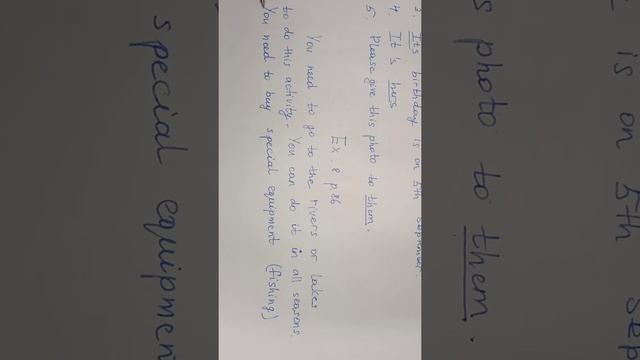 3. Its birthday is on 5th September.
4. It's hers
5. Please give this photo to them.
Ex. 8 p.86
You need to go to the rivers or lakes
to do this activity. You can do it in all seasons.
You need to buy special equipment (fishing)